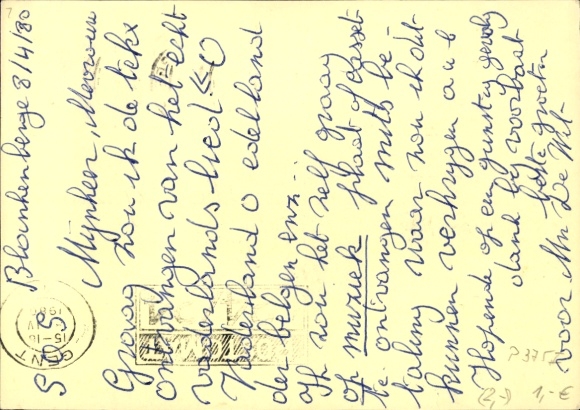 Blankenberge 8/4/80
S O S
Mijnheer, Mevrouw
Graag zou ik de tekst
ontvangen van het echt
vaderlands lied <<O
Vaderland o edel land
der belgen enz...
Ik zou het zelf graag
op muziek plaat of casset
te ontvangen mits be-
taling waar zou ik dit
kunnen verkrijgen a u b
Hopende op een gunstig gevolg
dank bij voorbaat
beste groeten
voor Mr De Wit
GENT
15-16
P 37 57
(2,-) 1,- €
7